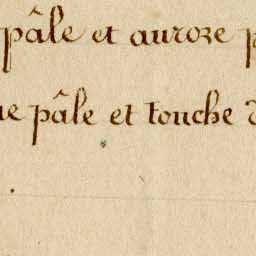 pâle et aurore
pâle et touche